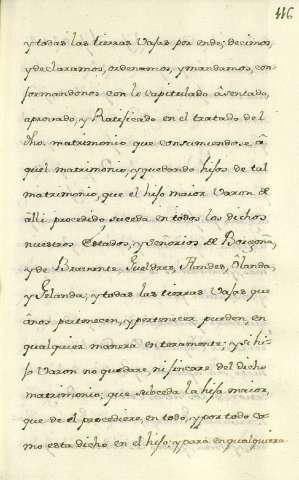 446
y todas las tierras vajas por ende; decimos,
y declaramos, ordenamos, y mandamos, con
formandonos con lo capitulado âsentado,
aprovado, y Ratificado en el tratado del
dho matrimonio que consumiendose â
quel matrimonio, y quedando hijos de tal
matrimonio, que el hijo maior Varon de
alli procedido, suceda en todos los dichos
nuestros Estados, y señorios de Borgoña,
y de Bravante, Gueldres, Flandes, Olanda,
y Gelanda; y todas las tierras Vajas que
ânos pertenecen, y pertenecer pueden, en
qualquier manera enteramente; y si hi-
jo Varon no quedare, ni fincare del dicho
matrimonio; que subceda la hija maior,
que de el procediere, en todo, y por todo co-
mo esta dicho en el hijo; y para en qualquiera